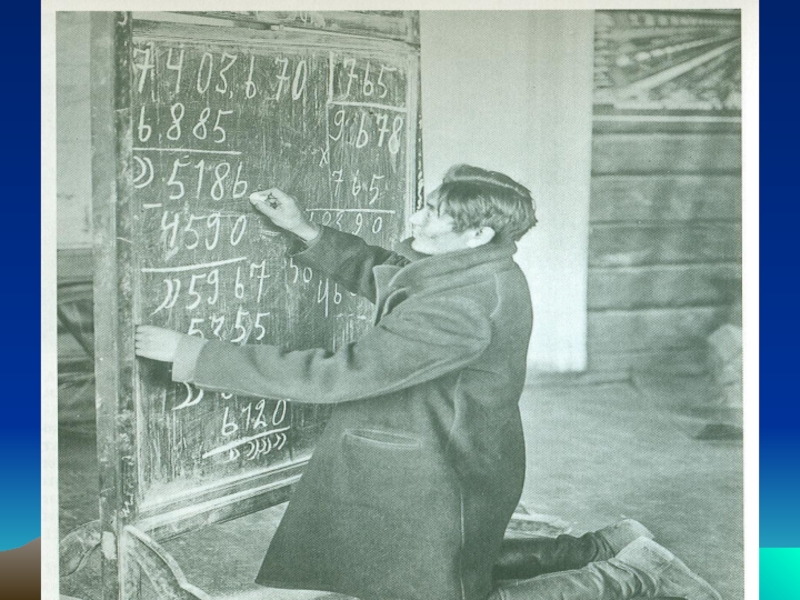 7,403,670 765
6.885 9.678
5186 × 765
4590
5967
5355
6120